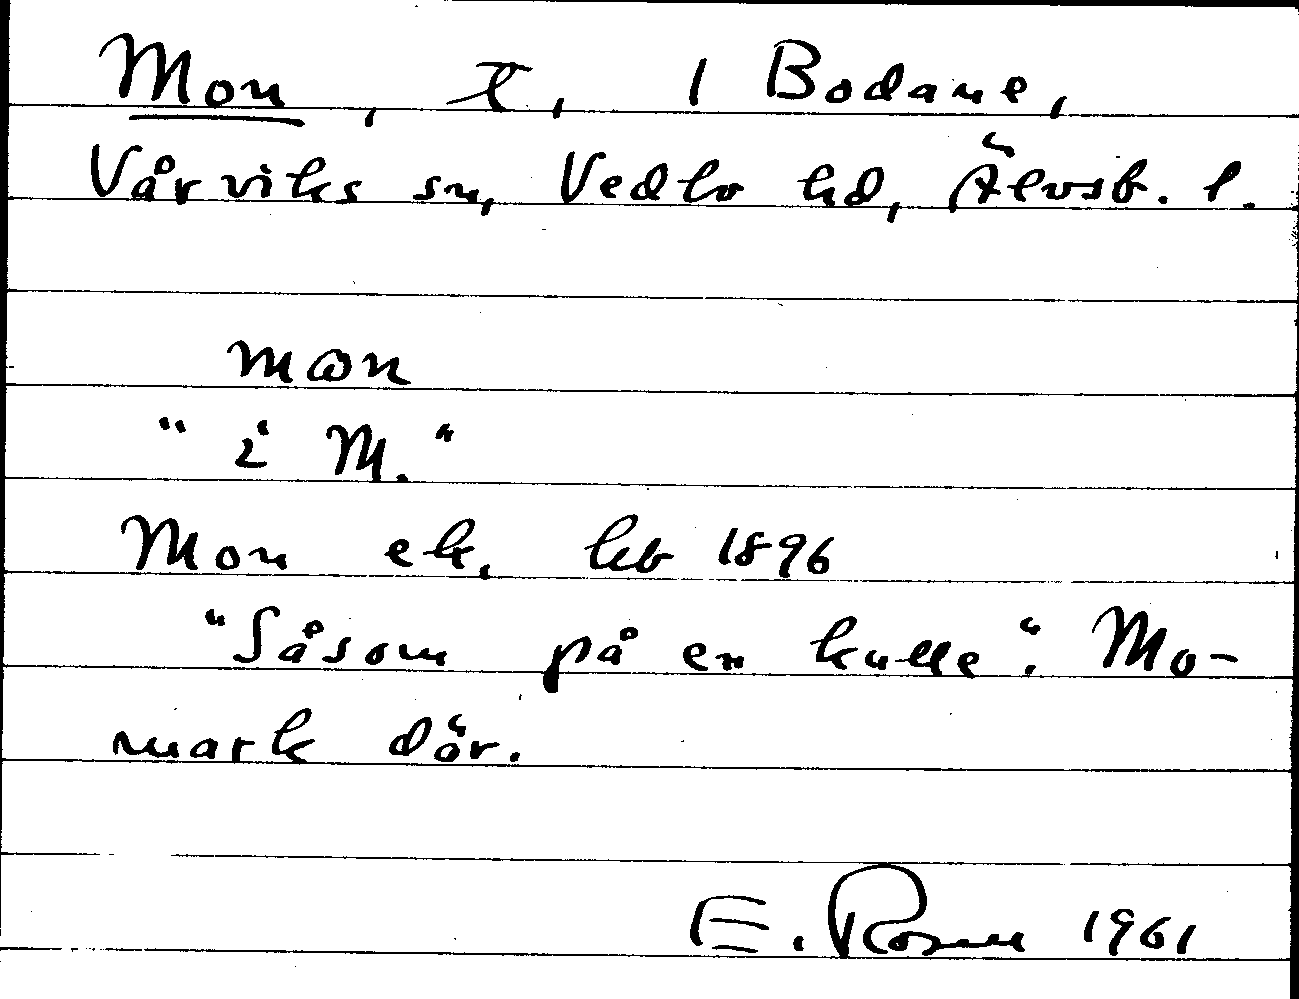 Mon, t, 1 Bodane,
Vårviks sn, Vedbo hd, Älvsb. l.
mɷn
"i M."
Mon ek. kb 1896
"Såsom på en kulle". Mo-
mark där.
E. Rosell 1961